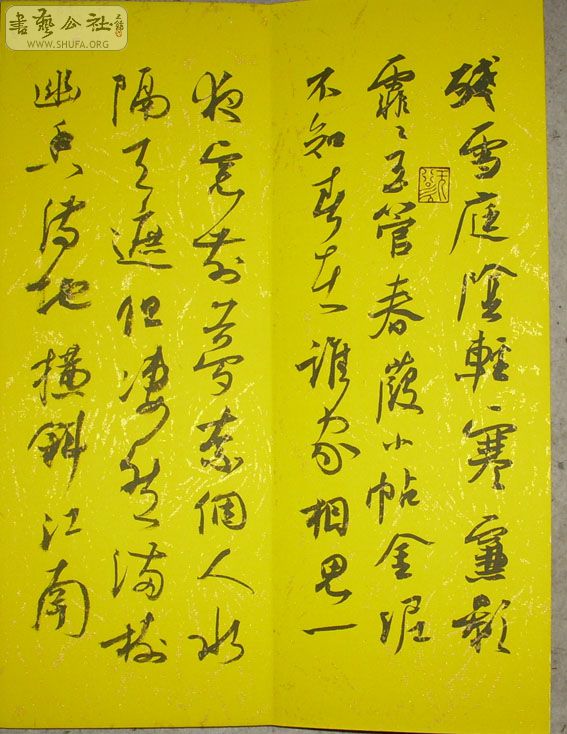 殘雪庭陰輕寒簾影
霏〻玉管春葭小帖金泥
不知春在誰家相思一
夜窗前夢奈個人水
隔天遮但凄然滿樹
幽香滿地橫斜江南
書藝公社
WWW.SHUFA.ORG